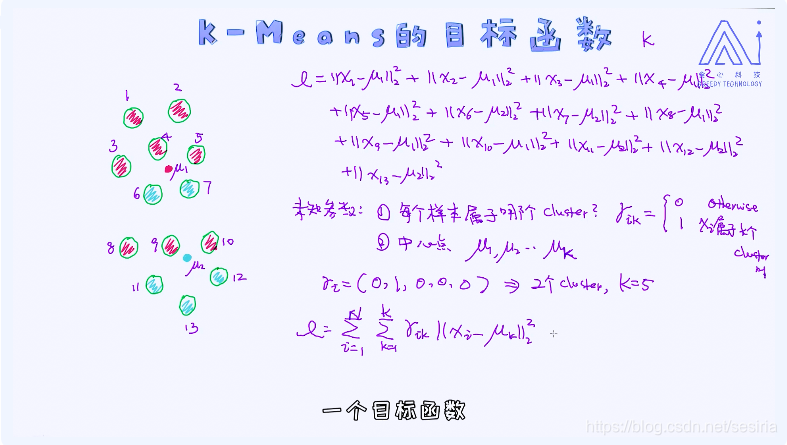 K-Means的目标函数 K
贪心科技
GREEDY TECHNOLOGY
ℓ=||x₁-μ₁||₂² + ||x₂-μ₁||₂² + ||x₃-μ₁||₂² + ||x₄-μ₁||₂²
+||x₅-μ₁||₂² + ||x₆-μ₂||₂² + ||x₇-μ₂||₂² + ||x₈-μ₁||₂²
+||x₉-μ₁||₂² + ||x₁₀-μ₁||₂² + ||x₁₁-μ₂||₂² + ||x₁₂-μ₂||₂²
+||x₁₃-μ₂||₂²
未知参数: ① 每个样本属于哪个cluster? γik = { 0 otherwise
1 xi属于k个
cluster
② 中心点 μ₁,μ₂…μK
γi=(0,1,0,0,0) ⇒ 2个cluster, K=5
ℓ= Σ(i=1, N) Σ(k=1, K) γik ||xi-μk||₂²
1 2
3 4 5
μ₁
6 7
8 9 10
μ₂
11 12
13
一个目标函数
https://blog.csdn.net/sesiria